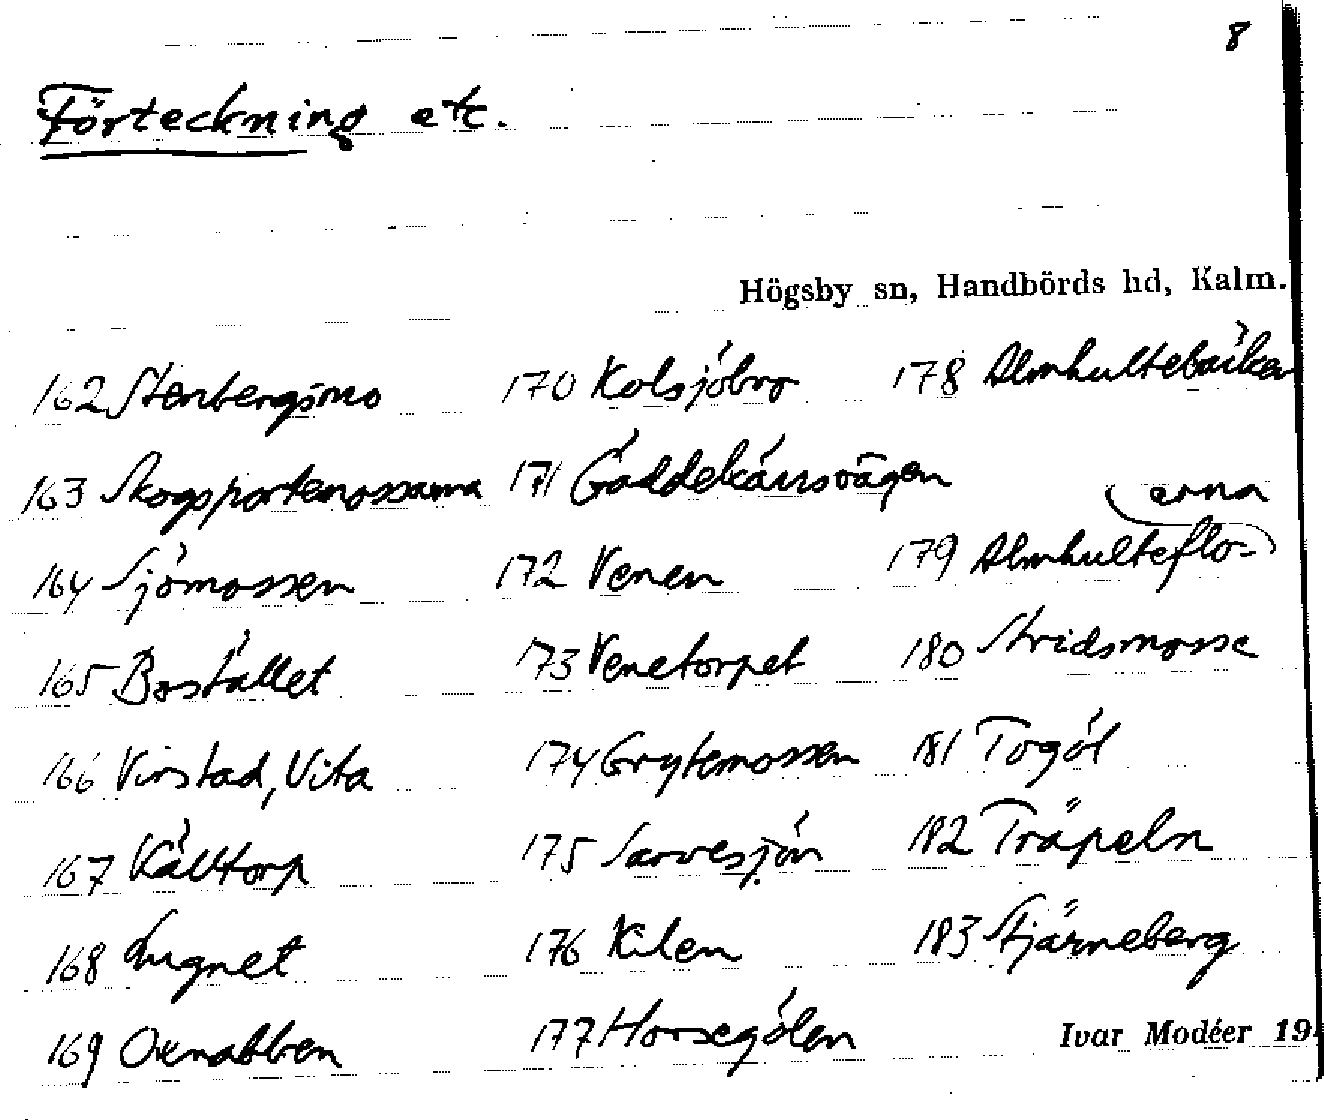 8
Förteckning etc.
Högsby sn, Handbörds hd, Kalm.
162 Stenbergsmo
163 Skogsportemossarna
164 Sjömossen
165 Bostället
166 Virstad, Vita
167 Källtorp
168 Lugnet
169 Oxenabben
170 Kolsjöbro
171 Gäddekärrsvägen
172 Venen
173 Venetorpet
174 Grytemossen
175 Sarvesjön
176 Kilen
177 Horsegölen
178 Almhultebäcken
179 Almhulteflo-erna
180 Stridsmosse
181 Togöl
182 Träpeln
183 Stjärneberg
Ivar Modéer 19